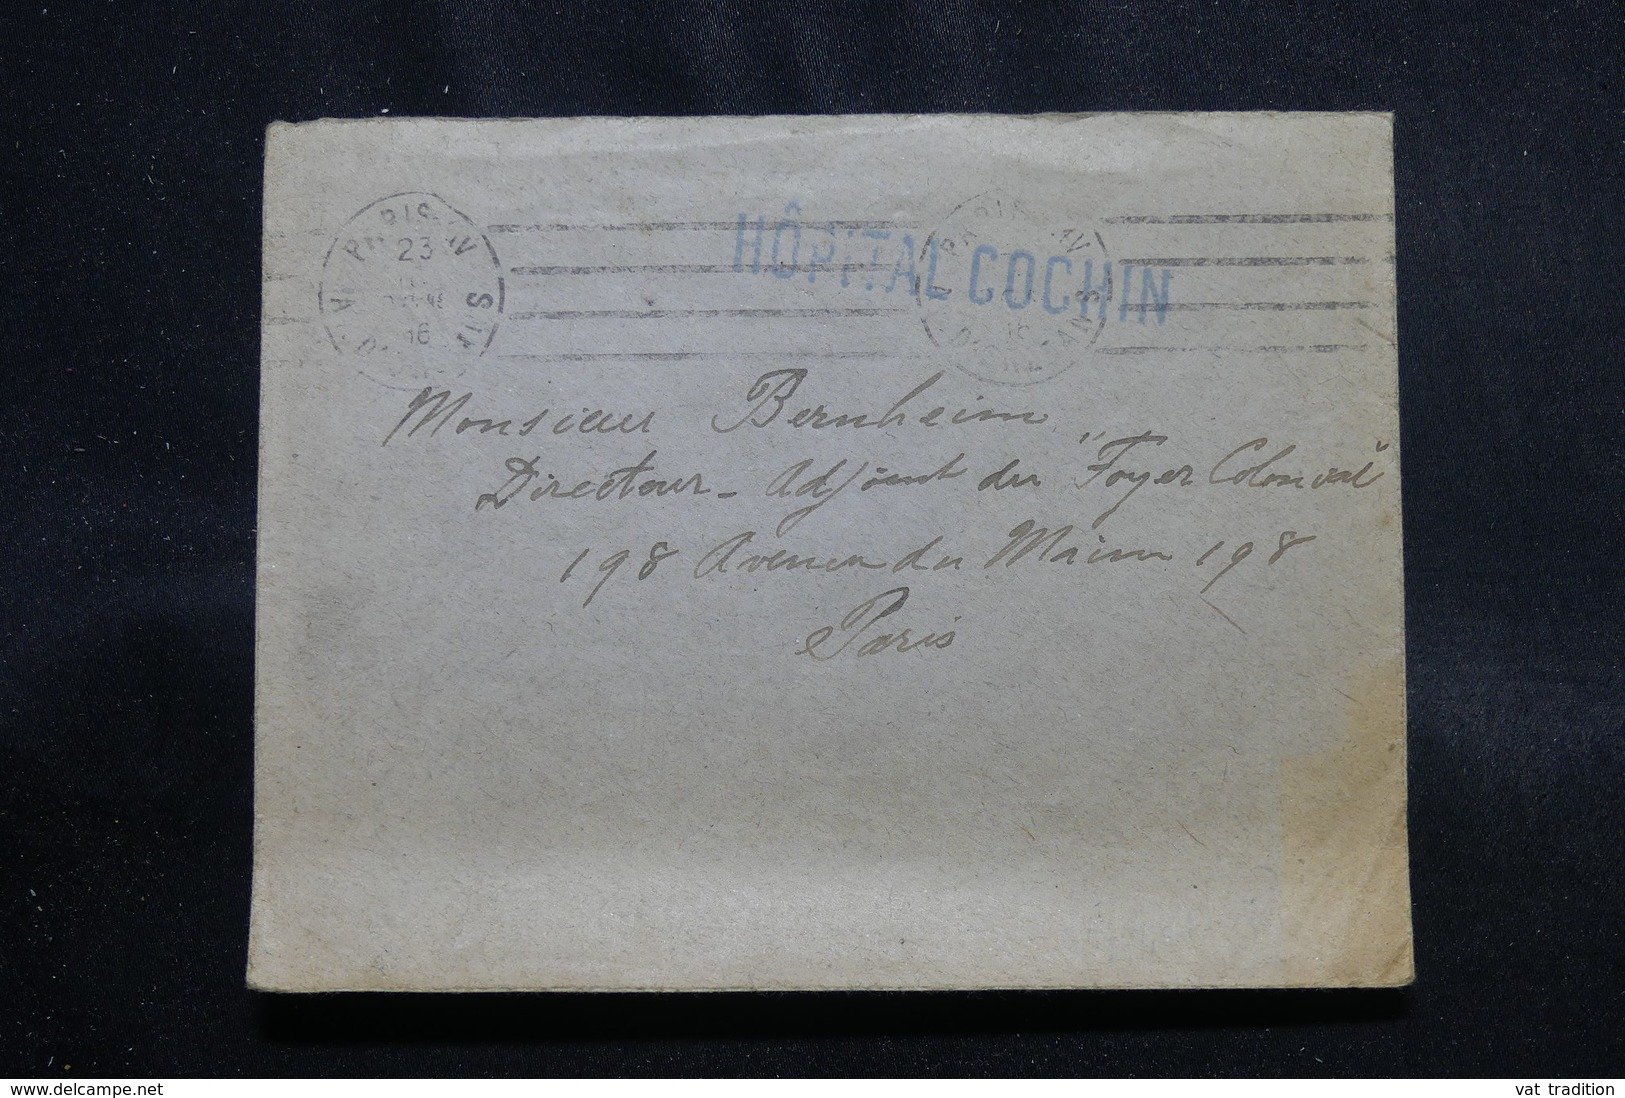 PARIS
23
16
HÔPITAL COCHIN
16
Monsieur Bernheim
Directeur - Adjoint du "Foyer Colonial"
198 Avenue du Maine 198
Paris
www.delcampe.net
vat tradition